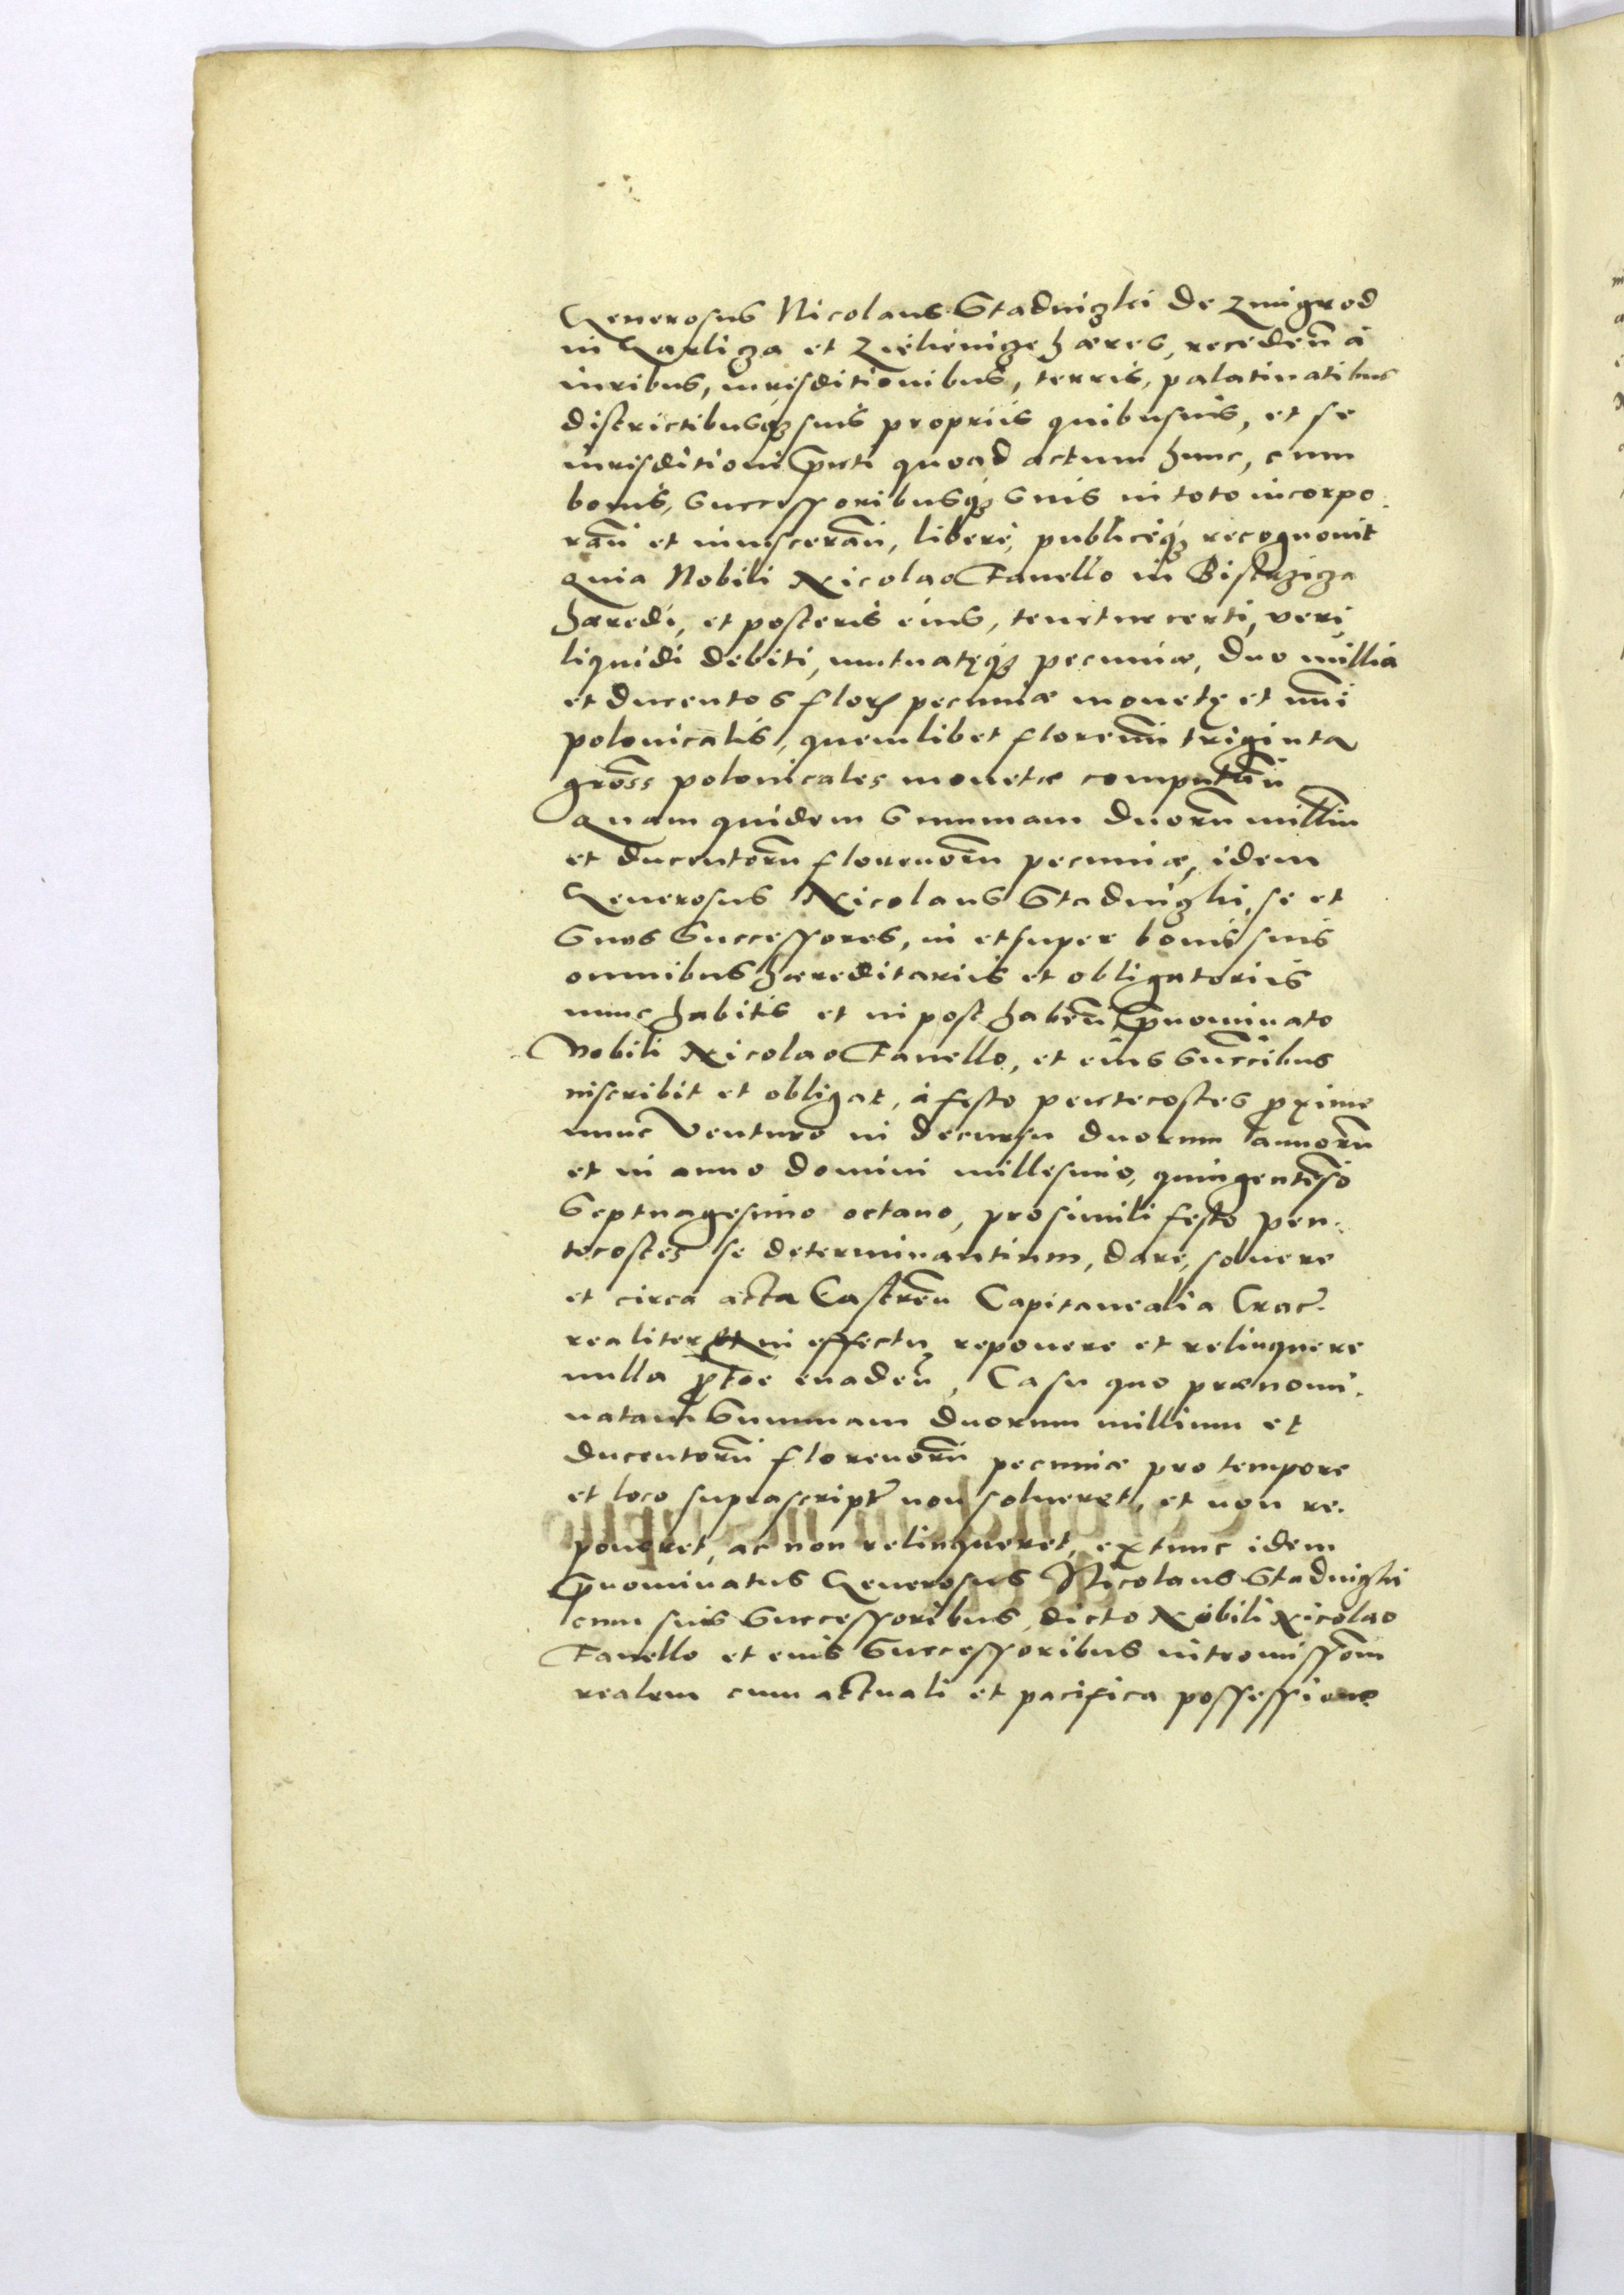 Generosus Nicolaus Stadniczki de Zmigrod
in Garlicza et Zielienicze hæres, recedeñ à
iuribus, iurisditionibus, terris, palatinatibus
districtibusq3 suis propriis quibusuis, et se
iurisditioni p̄nti quoad actum hunc, cum
bonis, successoribusq3 suis in toto incorpo.
rañ et inuisceran̄, liberè, publiceq3 recognouit
Quia Nobili Nicolao Fanello in
hæredi, et posteris eius, tenetur certi, veri
liquidi debiti, mutuatęq3 pecuniæ, duo millia
et ducentos flor pecuniæ monetę et nūi
polonicalis, quemlibet florenū triginta
gross polonicales monetæ computañ
Quam quidem summam duorū milliū
et ducentorū florenorū pecuniæ, idem
Generosus Nicolaus Stadniczki, se et
suos successores, in et super bonis suis
omnibus hæreditariis et obligatoriis
nunc habitis et in post habeñ, p̄nominato
Nobili Nicolao Fanello, et eius succ̄ibus
inscribit et obligat, à festo pentecostes proxime
nunc venturo in decursu duorum annorū
et in anno domini millesimo, quingentēso
septuagesimo octauo, pro simili festo pen.
tecostes se determinantium, dare, soluere
et circa acta Castreñ Capitanealia Crac.
realiter et in effectu reponere et relinquere
nulla p̄toe euadeñ, Casu quo prænomi.
natam summam duorum millium et
ducentorū florenorū pecuniæ pro tempore
et loco suprascript non solueret, et non re.
poneret, ac non relinqueret, extunc idem
p̄nominatus Generosus Nicolaus Stadniczki
cum suis successoribus, dicto Nobili Nicolao
Fanello et eius successoribus intromissiom̄
realem cum actuali et pacifica possessione